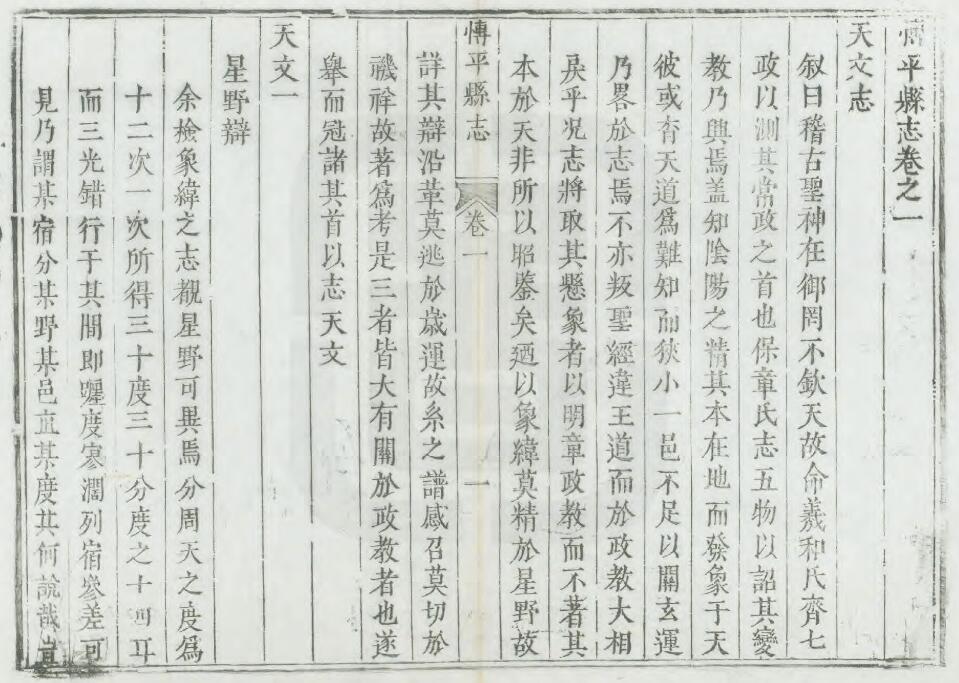 博平縣志卷之一
天文志
叙曰稽古聖神在御罔不欽天故命羲和氏齊七
政以測其常政之首也保章氏志五物以詔其變
教乃興焉盖知陰陽之精其本在地而發象于天
彼或杳天道爲難知而狹小一邑不足以關玄運
乃畧於志焉不亦叛聖經違王道而於政教大相
戾乎况志將取其懸象者以明章政教而不著其
本於天非所以昭鑒矣廼以象緯莫精於星野故
博平縣志
卷一
一
詳其辯沿革莫逃於歲運故系之譜感召莫切於
禨祥故著爲考是三者皆大有關於政教者也遂
舉而冠諸其首以志天文
天文一
星野辯
余撿象緯之志覩星野可異焉分周天之度爲
十二次一次所得三十度三十分度之十四耳
而三光錯行于其間即躔度寒濶列宿參差可
見乃謂某宿分某野某邑直某度其何説哉豈